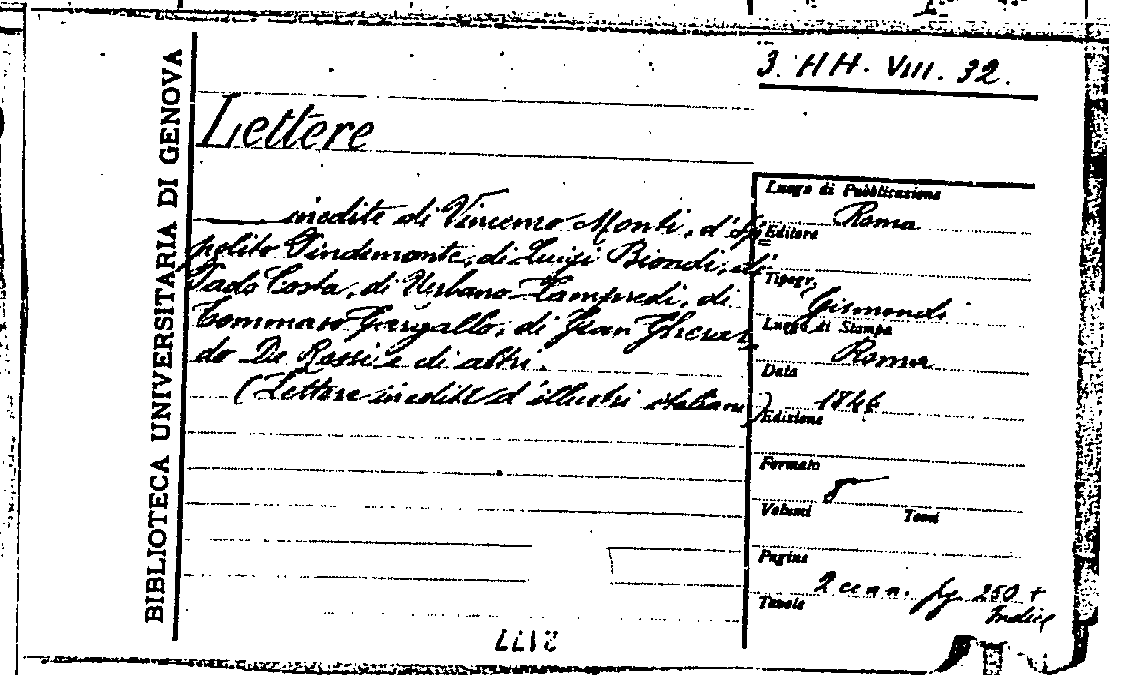 BIBLIOTECA UNIVERSITARIA DI GENOVA
3. HH. VIII. 32.
Lettere
inedite di Vincenzo Monti, d'Ip=
polito Pindemonte, di Luigi Biondi, di
Costa, di Urbano Lampredi, di
Tommaso Gargallo, di Gian Gherar
do De Rossi e di altri.
(Lettere inedite d'illustri italiani)
Luogo di Pubblicazione
Roma
Editore
Tipogr.
Gismondi
Luogo di Stampa
Roma
Data
1846
Edizione
Formato
8
Volumi Tomi
Pagine
2 cc n n. pg 250 +
Indice
Tavole
2177